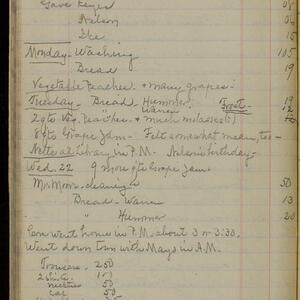 Gave Keyes 08
Nelson 04
Ike 15
Monday - Washing 105
Bread 19
Vegetable Peaches. & many grapes -
Tuesday - Bread, Hummer, Frost - 19
Waner
2 qts Veg. Peaches & much molasses
8 qts Grape Jam - Felt somewhat mean, too -
Nettie at Library in P.M. Helen's birthday -
Wed. 22 9 more qts Grape Jam
Mr. Moor - cleaning 50
Bread - Waner 13
" Hummer 20
went home in P.M. about 3 or 3:30.
Went down town with Mays in A.M.
Trousers 250
2 Shirts 100
neckties 50
Cap 50